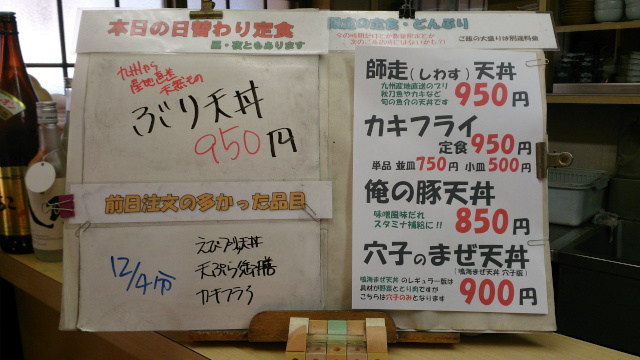 本日の日替わり定食
昼・夜ともあります
九州から
産地直送
天然もの
ぶり天丼
950円
前日注文の多かった品目
12/4分
えびブリ天丼
天ぷら定食
カキフライ
限定の定食・どんぶり
ご飯の大盛りは別途料金
師走(しわす)天丼
九州産地直送のブリ
秋刀魚やカキなど
旬の魚介の天丼です
950円
カキフライ
定食 950円
単品 並皿750円 小皿500円
俺の豚天丼
味噌風味だれ
スタミナ補給に!!
850円
穴子のまぜ天丼
(鳴海まぜ天丼 穴子版)
鳴海まぜ天丼 のレギュラー版は
具材が野菜ととり肉ですが
こちらは穴子のみとなります
900円